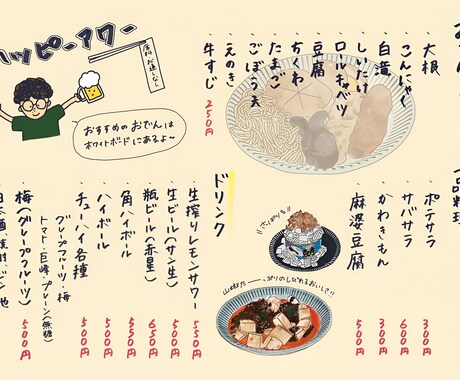 大根
こんにゃく
白滝
しいたけ
ロールキャベツ
豆腐
ちくわ
たまご
ごぼう天
えのき
牛すじ 250円
ハッピーアワー
おすすめのおでんは
ホワイトボードにあるよ〜
一品料理
ポテサラ 300円
サバサラ 600円
かわきもん 300円
麻婆豆腐 500円
さっぱり!!
山椒たーーっぷりのしびれるおいしさ!!
ドリンク
生搾りレモンサワー 550円
生ビール(サン生) 500円
瓶ビール(赤星) 650円
角ハイボール 550円
ハイボール 500円
チューハイ各種 500円
グレープフルーツ・梅
トマト・巨峰・プレーン(無糖)
梅(グレープフルーツ) 500円